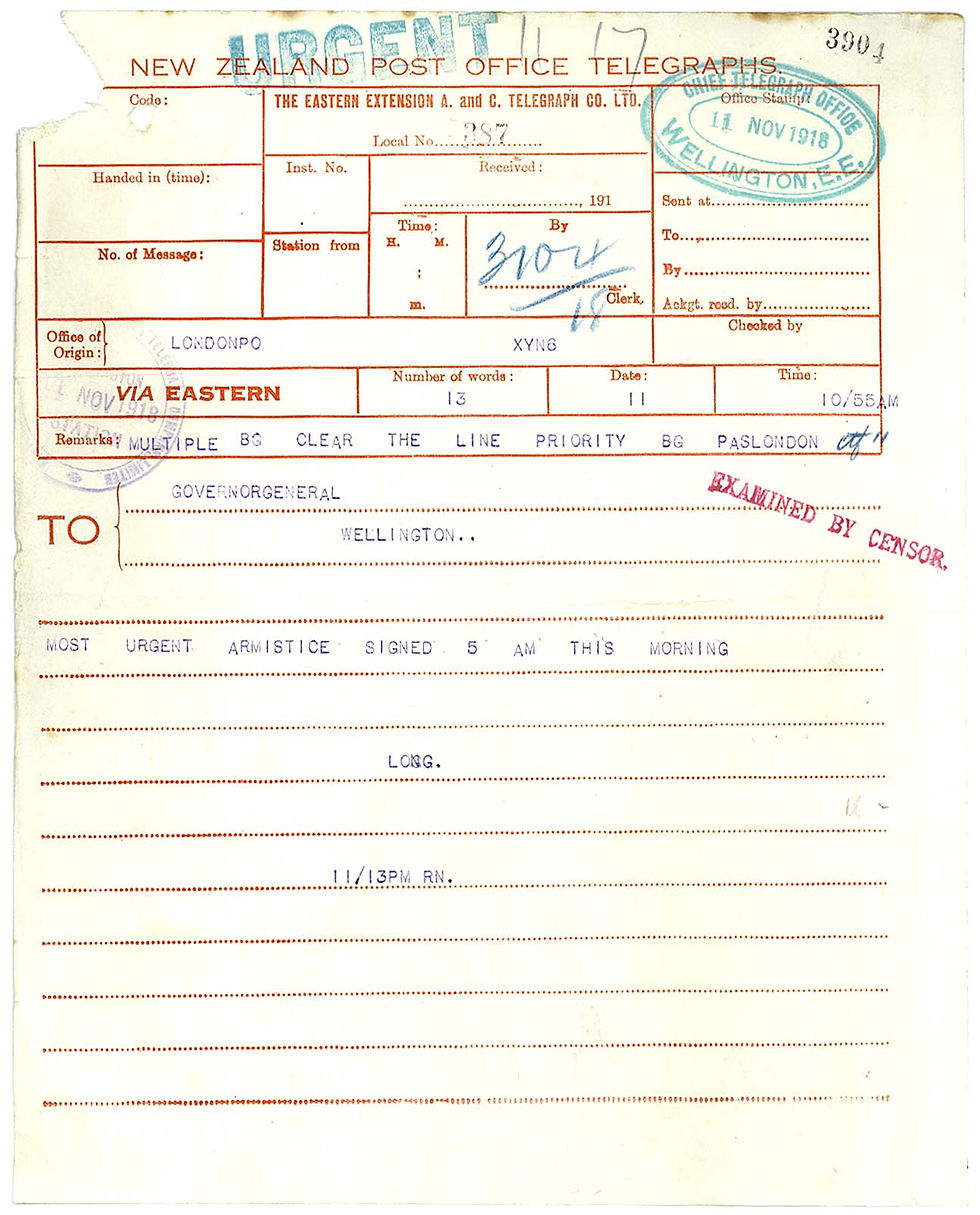 URGENT 11 17
3904
NEW ZEALAND POST OFFICE TELEGRAPHS.
Code:
THE EASTERN EXTENSION A. and C. TELEGRAPH CO. LTD.
Local No. 387
Office Stamp:
CHIEF TELEGRAPH OFFICE
11 NOV 1918
WELLINGTON, E.E.
Handed in (time):
Inst. No.
Received:
, 191
Sent at
No. of Message:
Station from
Time:
H. M.
:
m.
By
3104/18
Clerk.
To
By
Ackgt. recd. by
Office of Origin:
LONDONPO XYN6
Checked by
VIA EASTERN
Number of words:
13
Date:
11
Time:
10/55AM
NOV 1918
STATION
LIMITED
Remarks: MULTIPLE BG CLEAR THE LINE PRIORITY BG PASLONDON
TO
GOVERNORGENERAL
WELLINGTON..
EXAMINED BY CENSOR.
MOST URGENT ARMISTICE SIGNED 5 AM THIS MORNING
LONG.
11/13PM RN.